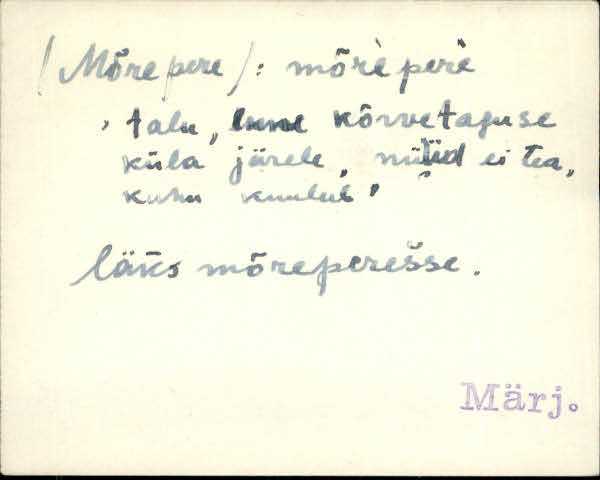 (Mõrepere): mõrèperè
' talu, enne kõrvetaguse
küla järele, nüüd ei tea,
kuhu kuulub'
läks mõreperešse.
Märj.